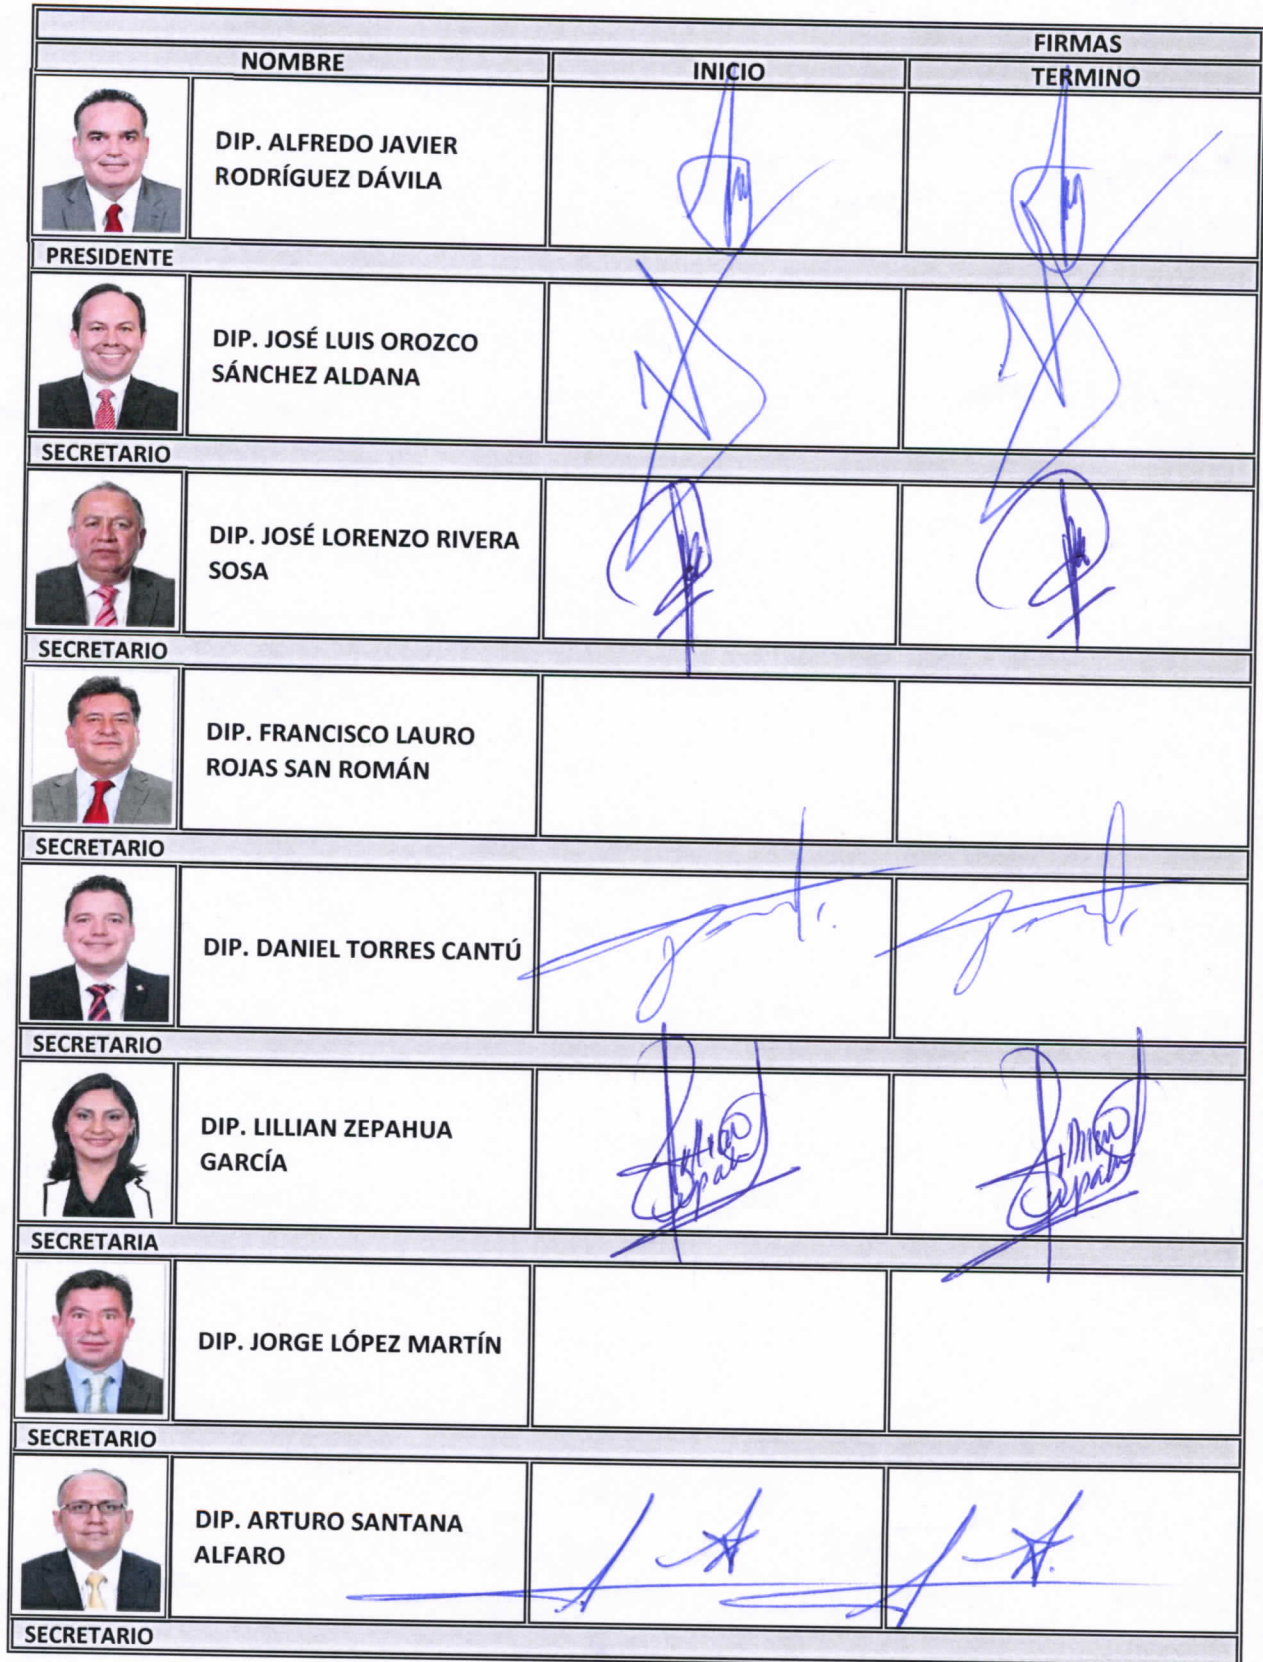 FIRMAS
NOMBRE INICIO TERMINO
DIP. ALFREDO JAVIER
RODRÍGUEZ DÁVILA
PRESIDENTE
DIP. JOSÉ LUIS OROZCO
SÁNCHEZ ALDANA
SECRETARIO
DIP. JOSÉ LORENZO RIVERA
SOSA
SECRETARIO
DIP. FRANCISCO LAURO
ROJAS SAN ROMÁN
SECRETARIO
DIP. DANIEL TORRES CANTÚ
SECRETARIO
DIP. LILLIAN ZEPAHUA
GARCÍA
SECRETARIA
DIP. JORGE LÓPEZ MARTÍN
SECRETARIO
DIP. ARTURO SANTANA
ALFARO
SECRETARIO